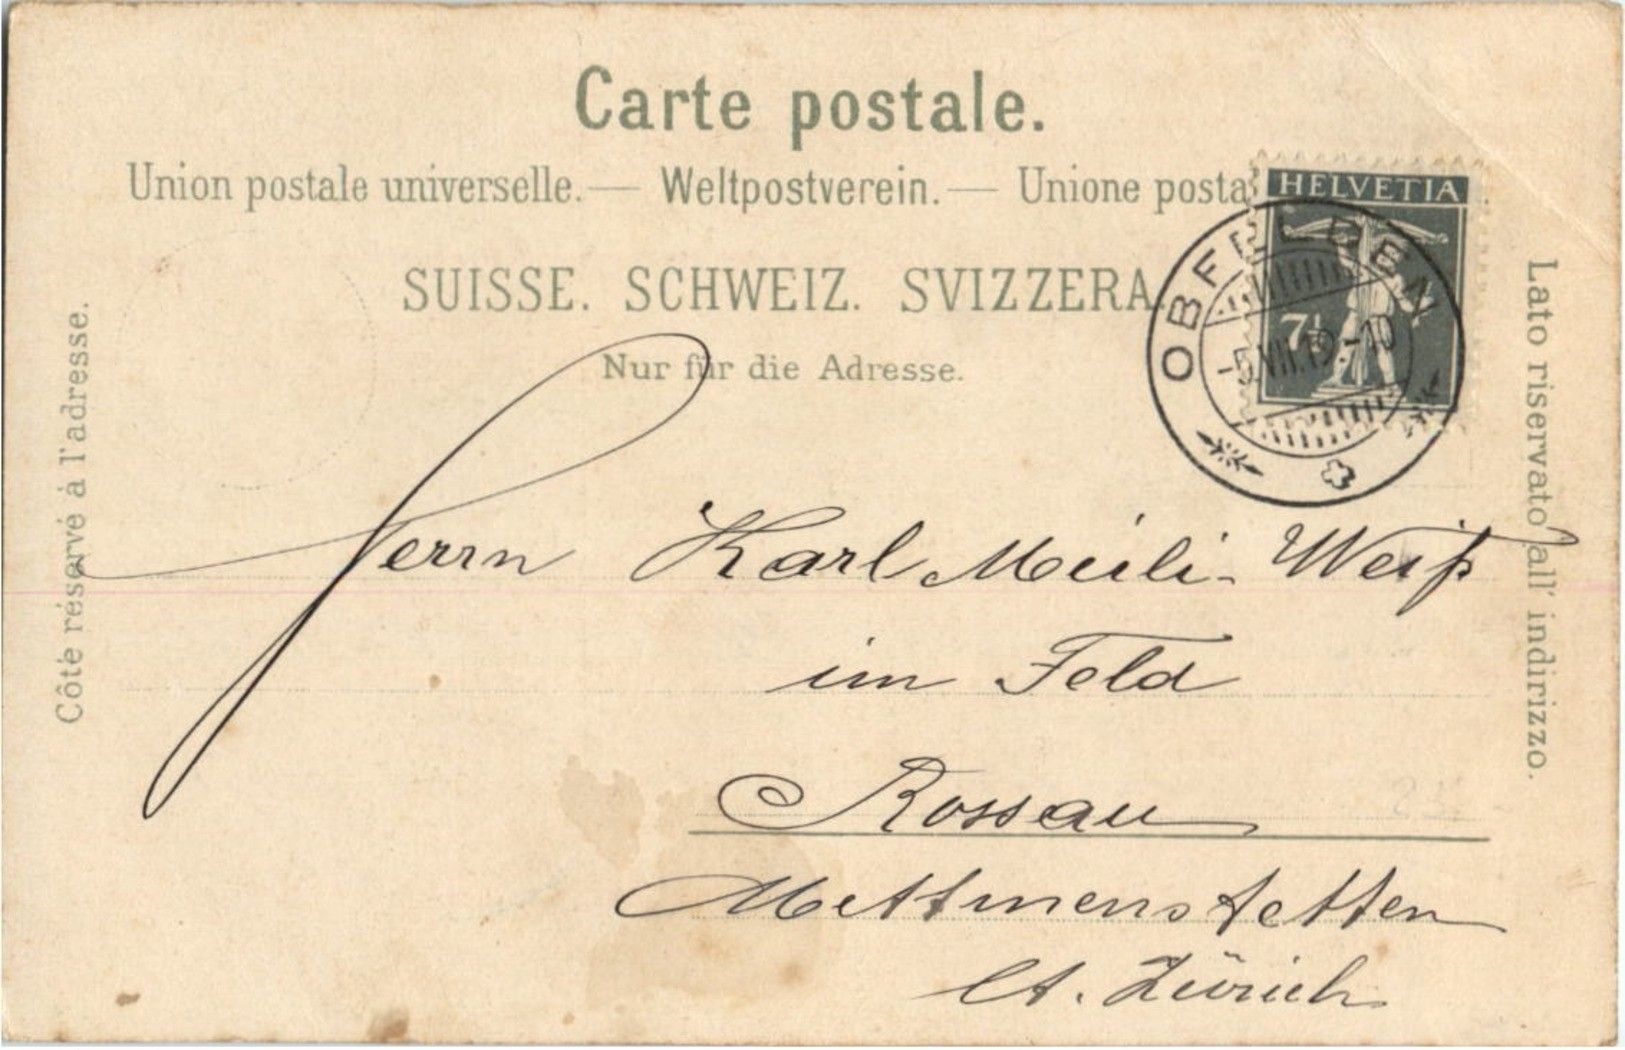 Carte postale.
Union postale universelle. — Weltpostverein. — Unione posta
SUISSE. SCHWEIZ. SVIZZERA.
Nur für die Adresse.
Côté réservé à l'adresse.
Lato riservato all' indirizzo.
HELVETIA
7½
OBFELDEN
-5.VII.19.-10
Herrn Karl Meili-Weiß
im Feld
Rossau
Mettmenstetten
Ct. Zürich